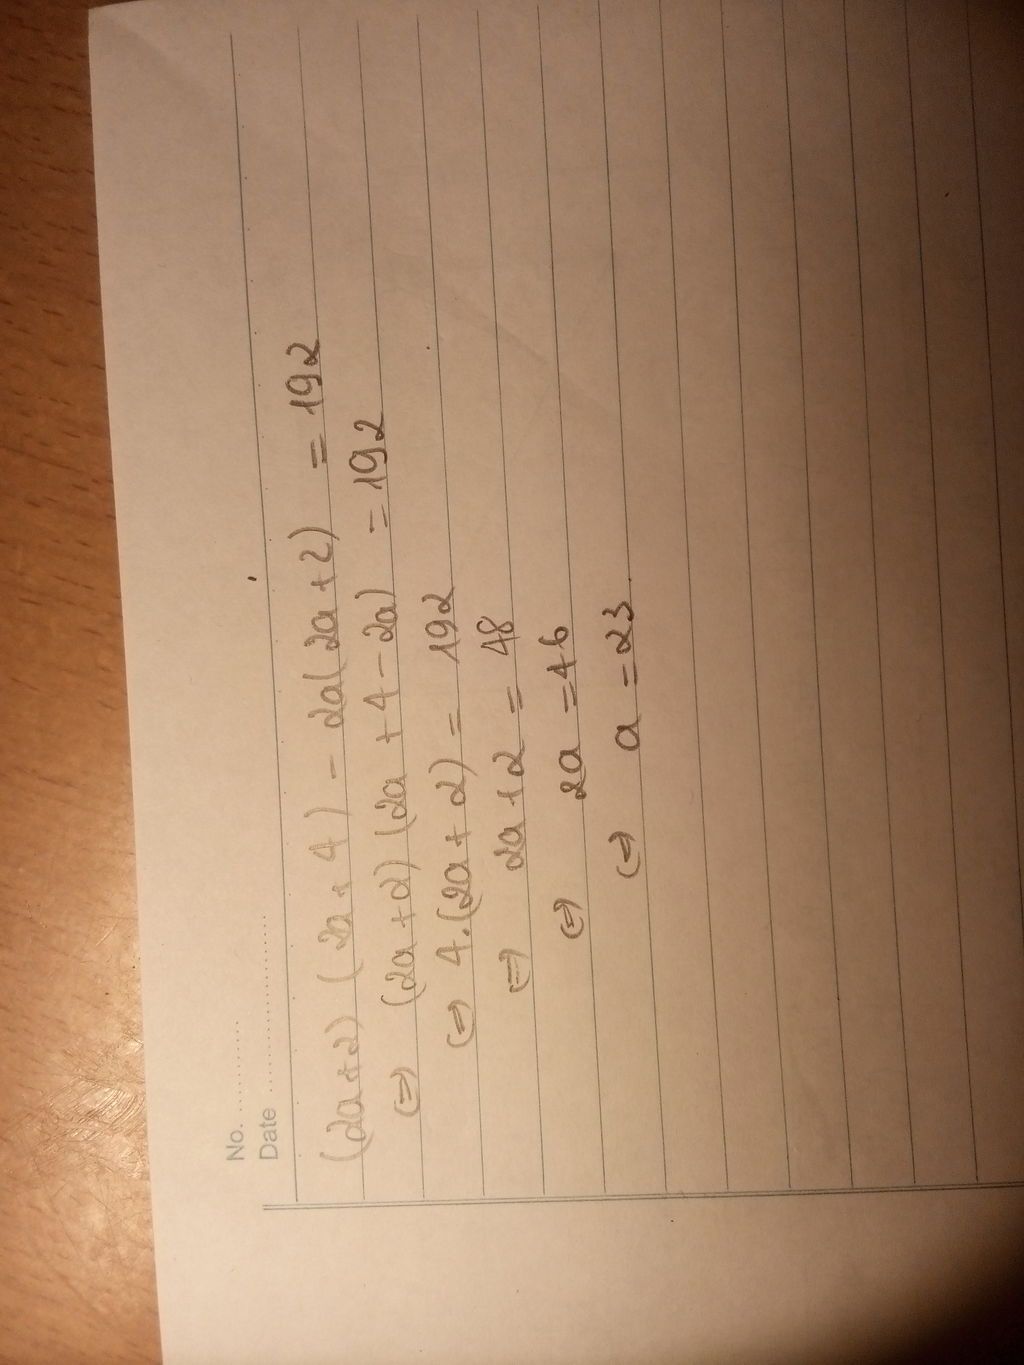 No. ............
Date ........................
(2a+2) (2a+4) - 2a(2a+2) = 192
(=) (2a+2) (2a+4-2a) = 192
(=) 4.(2a+2) = 192
(=) 2a+2 = 48
(=) 2a = 46
(=) a = 23